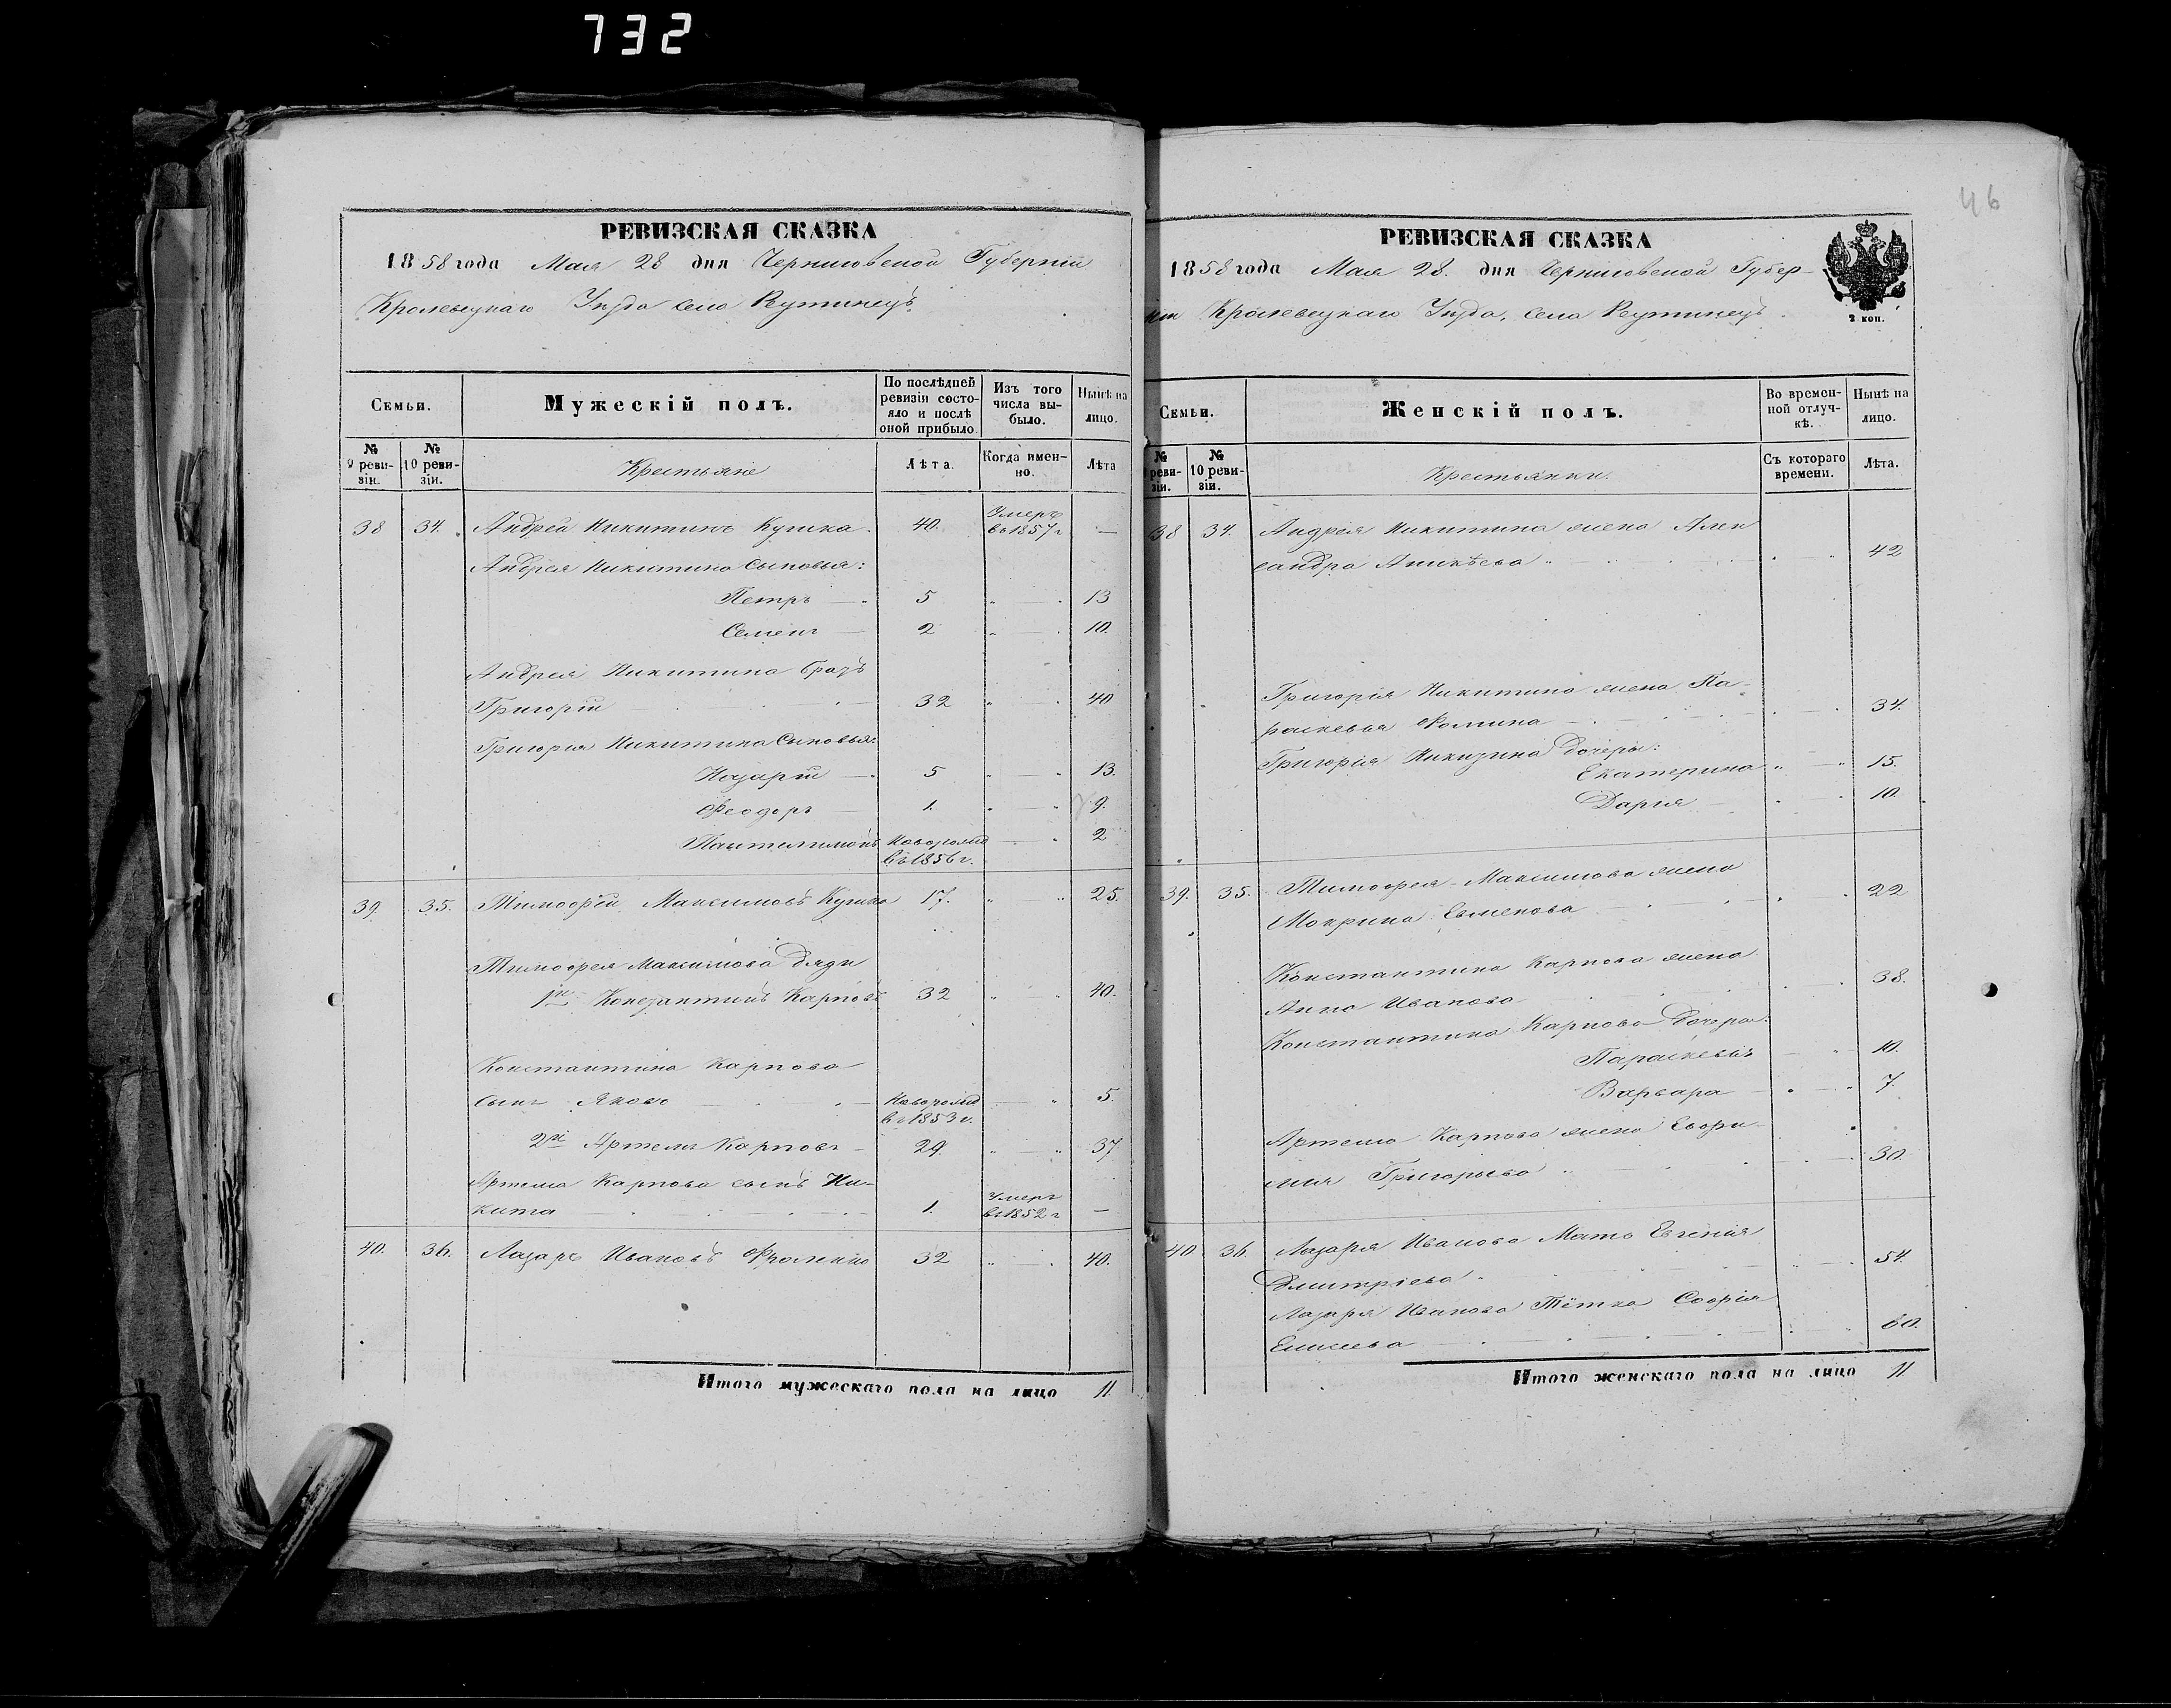 732
46
РЕВИЗСКАЯ СКАЗКА
1858 года Мая 28 дня Черниговской Губерніи
Кролевецкаго Уѣзда села Рутинецъ
Семьи.
Мужескій полъ.
По послѣдней ревизіи состояло и послѣ оной прибыло
Изъ того числа выбыло.
Нынѣ на лицо.
№ 9 ревизіи.
№ 10 ревизіи.
Крестьяне
Лѣта.
Когда именно.
Лѣта
38 34. Андрей Никитинъ 40. Умеръ въ 1857 г —
Андрея Никитина Сыновья:
Петръ — 5 13
Семенъ — 2 10.
Андрея Никитина братъ
Григорій 32 40
Григорія Никитина Сыновья:
Назарій — 5 13.
Феодоръ — 1. 9.
Пантелимонъ новорожд въ 1856 г. 2
39. 35. Тимофѣй Максимовъ 17. 25.
Тимофея Максимова дяди
1й Констянтинъ Карповъ 32 40.
Констянтина Карпова
сынъ Яковъ новорожд въ 1853 г. 5.
2й Артемъ Карповъ — 29. 37
Артема Карпова сынъ Ни-
кита 1. Умеръ въ 1852 г —
40. 36. Лазарь Ивановъ Фроленко 32 40.
Итого мужескаго пола на лицо 11
РЕВИЗСКАЯ СКАЗКА
1858 года Мая 28. дня Черниговской Губер-
ніи Кролевецкаго Уѣзда, села Рутинецъ
2 коп.
Семьи.
Женскій полъ.
Во временной отлучкѣ.
Нынѣ на лицо.
№ ревизіи.
№ 10 ревизіи.
Крестьянки.
Съ котораго времени.
Лѣта.
38 34. Андрея Никитина жена Алек
сандра Аникѣева 42
Григорія Никитина жена Па-
раскевья Фомина 34.
Григорія Никитина дочери:
Екатерина 15.
Дарья 10.
39. 35. Тимофея Максимова жена
Мокрина Евменова 22
Константина Карпова жена
Анна Иванова 38.
Константина Карпова дочери:
Параскевія 10.
Варвара 7.
Артема Карпова жена Евфи-
мія Григорьева 30.
40 36. Лазаря Иванова Мать Евгенія
Дмитріева 54.
Лазаря Иванова Тётка Софія
Елисеева 60.
Итого женскаго пола на лицо 11